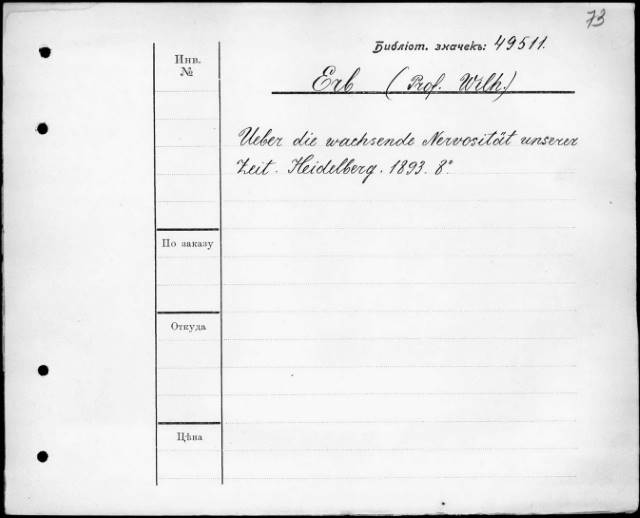 73
Библіот. значекъ: 49511.
Инв.
№
Erb (Prof. Wilh.)
Ueber die wachsende Nervosität unserer
Zeit. Heidelberg. 1893. 8°
По заказу
Откуда
Цѣна